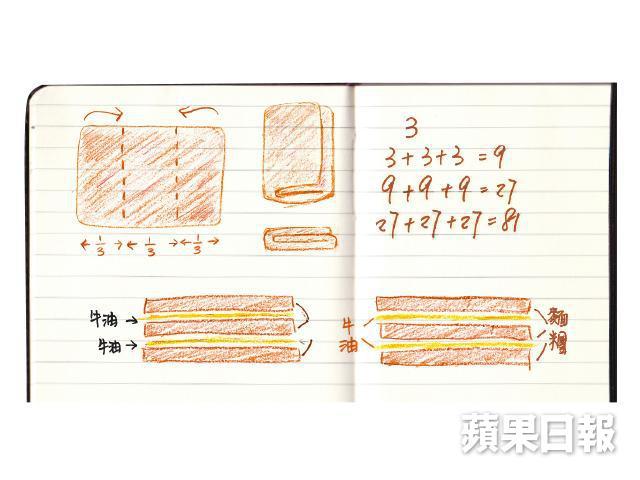 3
3+3+3=9
9+9+9=27
27+27+27=81
←1/3→←1/3→←1/3→
牛油→
牛油→
牛油
麵糰
蘋果日報